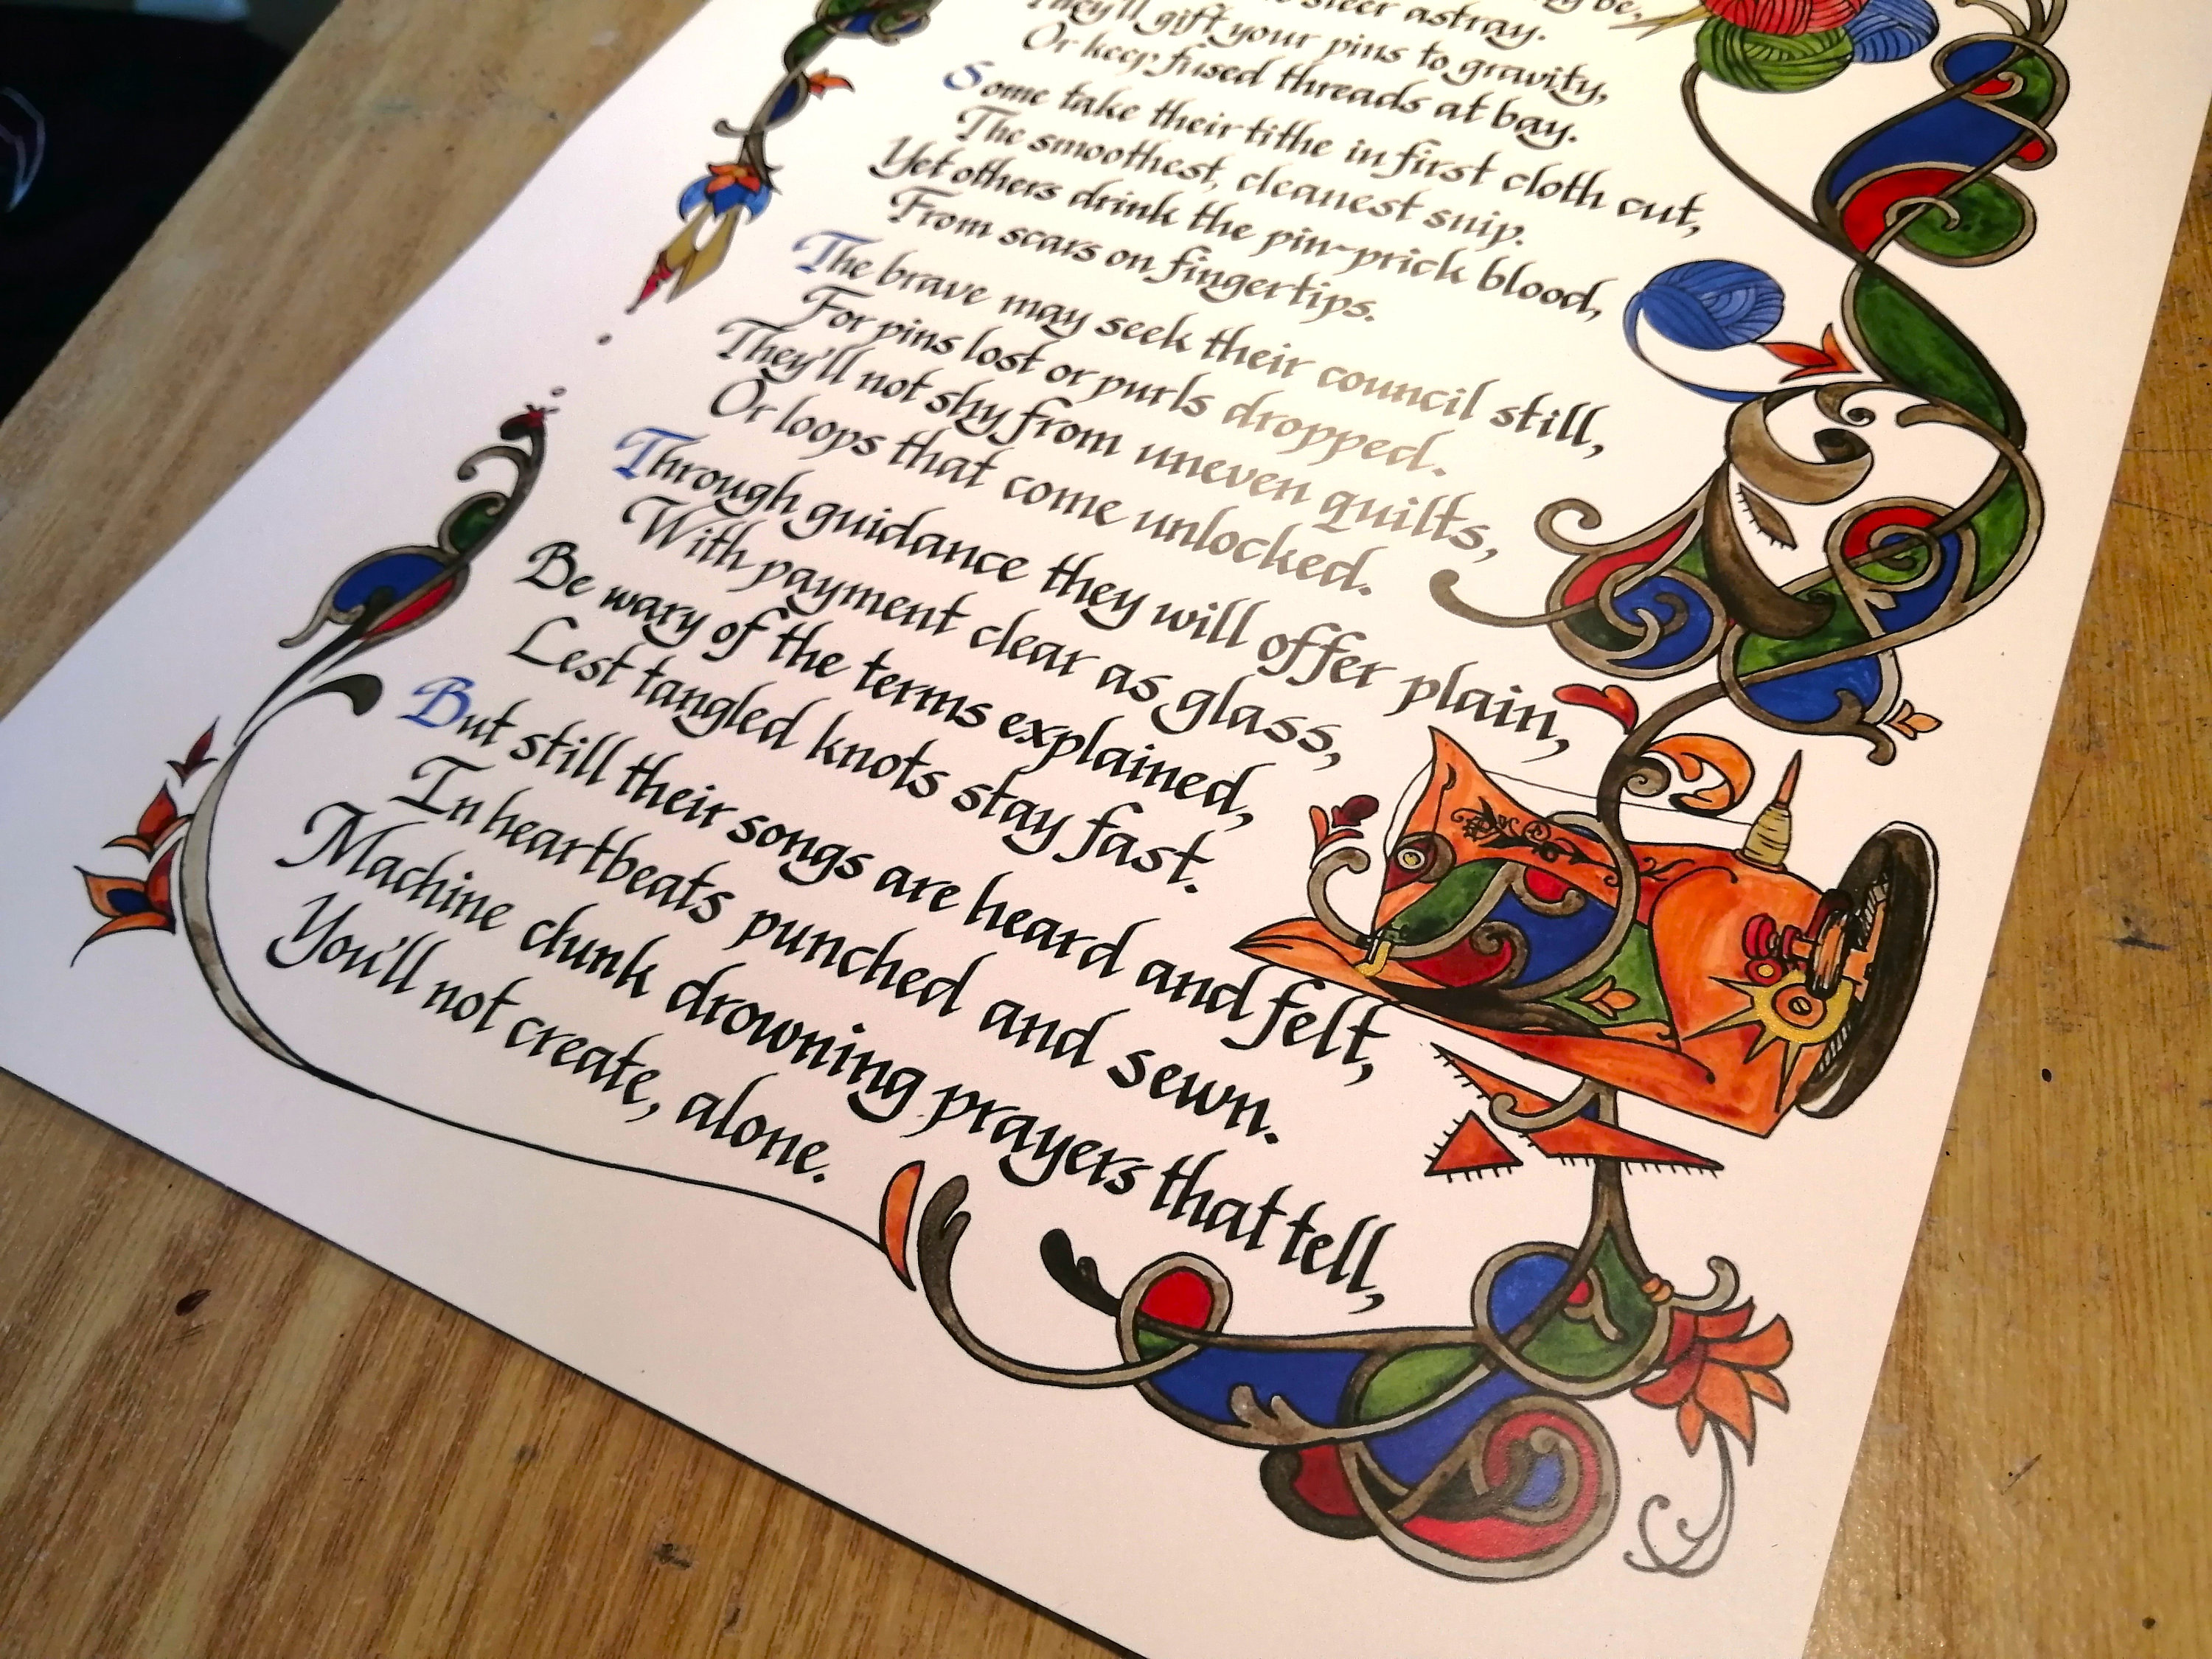 be,
steer astray.
They'll gift your pins to gravity,
Or keep fused threads at bay.
Some take their tithe in first cloth cut,
The smoothest, cleanest snip.
Yet others drink the pin-prick blood,
From scars on fingertips.
The brave may seek their council still,
For pins lost or purls dropped.
They'll not shy from uneven quilts,
Or loops that come unlocked.
Through guidance they will offer plain,
With payment clear as glass,
Be wary of the terms explained,
Lest tangled knots stay fast.
But still their songs are heard and felt,
In heartbeats punched and sewn.
Machine clunk drowning prayers that tell,
You'll not create, alone.